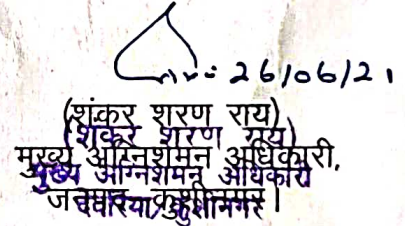 26/06/21
(शंकर शरण राय)
(शंकर शरण राय)
मुख्य अग्निशमन अधिकारी,
मुख्य अग्निशमन अधिकारी
जनपद कुशीनगर।
देवरिया/कुशीनगर